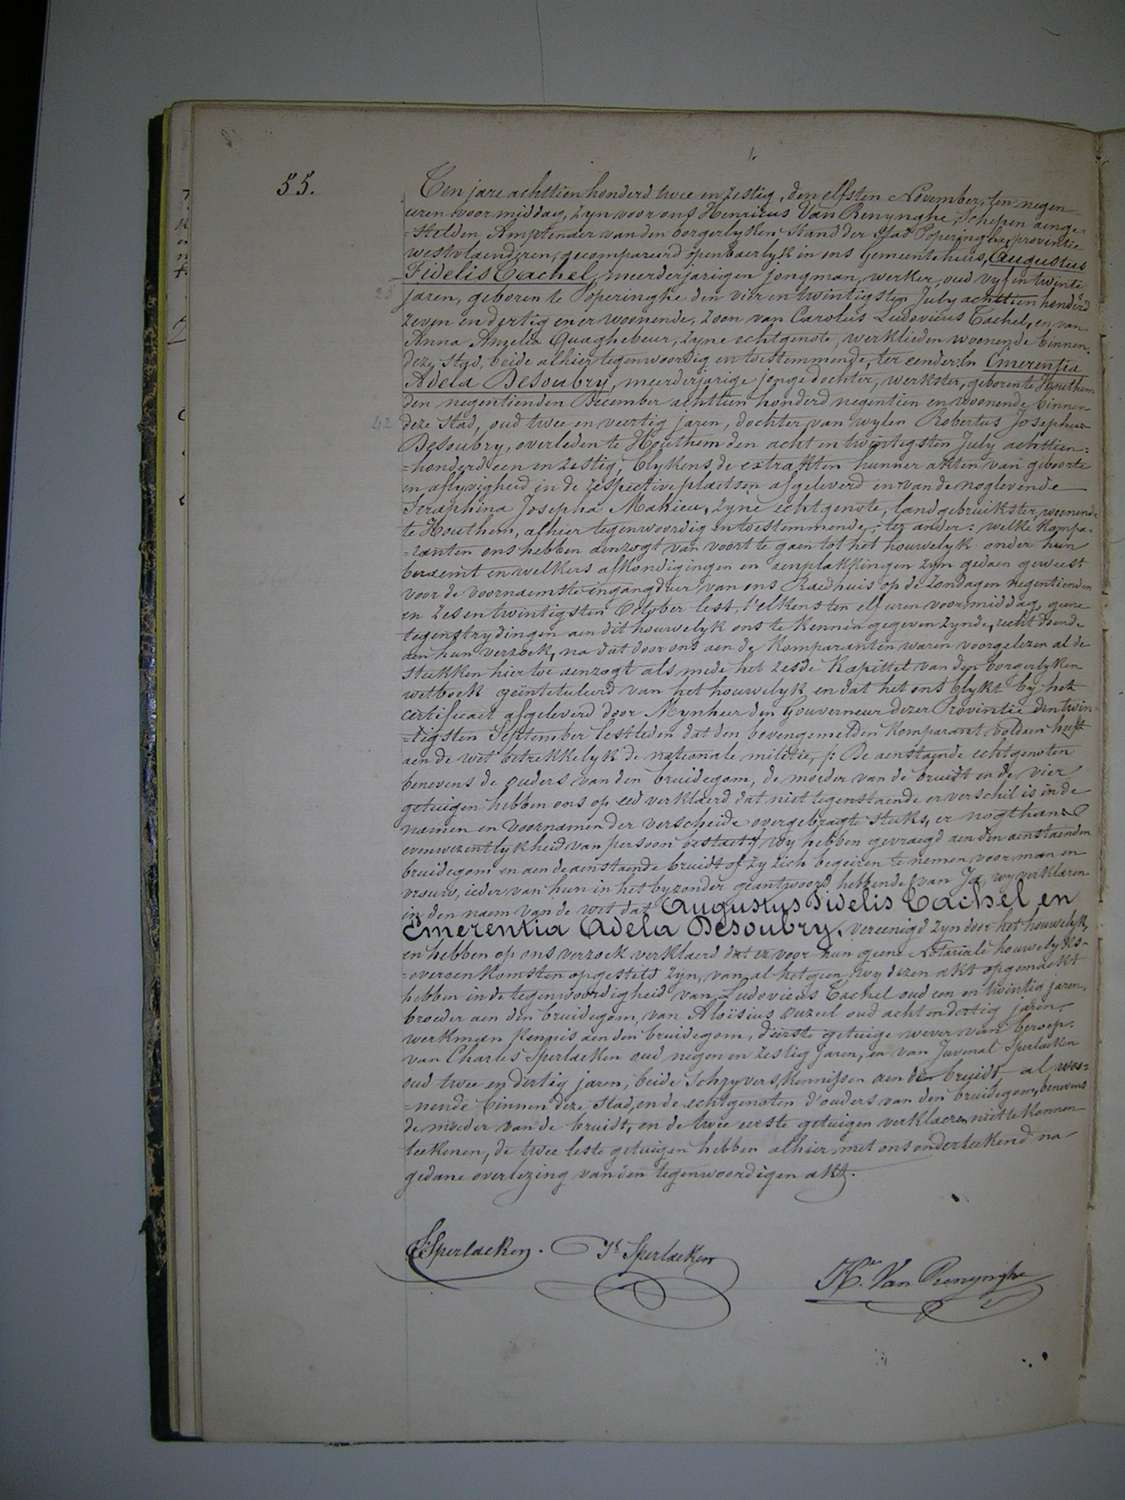 55.
Ten jare achttien honderd twee en zestig, den elfsten November, ten negen
uren voor middag, zyn voor ons Henricus Van Renynghe, schepen aenge-
-stelden Amptenaer van den borgerlyken stand der stad Poperinghe, provintie
westvlaenderen, gecompareerd openbaerlyk in ons Gemeentehuis, Augustus
Fidelis Cachel, meerderjarigen jongman, werker, oud vyf en twintig
25 jaren, geboren te Poperinghe den vier en twintigsten July achttien honderd
zeven en dertig en er woonende, zoon van Carolus Ludovicus Cachel, en van
Anna Amelia Quaghebeur, zyne echtgenote, werklieden woonende binnen
deze stad, beide alhier tegenwoordig en toestemmende, ter eender: En Emerentia
Adela Desoubry, meerderjarige jonge dochter, werkster, geboren te Houthem
den negentienden December achttien honderd negentien en woonende binnen
42 deze stad, oud twee en veertig jaren, dochter van wylen Robertus Josephus
Desoubry, overleden te Houthem den acht en twintigsten July achttien-
-honderd een en zestig, blykens de extrakten hunner akten van geboorte
en aflyvigheid in de respective plaetsen afgeleverd en van de noglevende
Seraphina Josepha Mahieu, zyne echtgenote, landgebruikster, woonende
te Houthem, alhier tegenwoordig en toestemmende, ter ander: welke kompa-
-ranten ons hebben aenzogt van voort te gaen tot het houwelyk onder hun
beraemt en welkers afkondigingen en aenplakkingen zyn gedaen geweest
voor de voornaemste ingangdeur van ons Raedhuis op de zondagen negentienden
en zesentwintigsten October lest, t'elkens ten elf uren voormiddag, geene
tegenstrydingen aen dit houwelyk ons te kennen gegeven zynde, recht doende
aen hun verzoek, na dat door ons aen de komparanten waren voorgelezen al de
stukken hiertoe aenzogt als mede het zesde kapittel van den borgerlyken
wetboek geïntituleerd van het houwelyk en dat het ons blykt by het
certificaet afgeleverd door Mynheer den Gouverneur dezer Provintie den twin-
-tigsten September lestleden dat den bovengemelden komparant voldaen heeft
aen de wet betrekkelyk de nationale militie; De aenstaende echtgenoten
benevens de ouders van den bruidegom, de moeder van de bruidt en de vier
getuigen hebben ons op eed verklaerd dat niettegenstaende er verschil is in de
namen en voornamen der verscheide overgebragte stuks, er nogthans
evenwezentlykheid van persoon bestaet; wy hebben gevraegd aen den aenstaenden
bruidegom en aen de aenstaende bruidt of zy zich begeiren te nemen voor man en
vrouw, ieder van hun in het byzonder geantwoord hebbende van Ja, wy verklaren
in den naem van de wet dat Augustus Fidelis Cachel en
Emerentia Adela Desoubry, vereenigd zyn door het houwelyk,
en hebben op ons verzoek verklaerd dat er voor hun geene Notariale houwelyks-
-overeenkomsten opgesteld zyn, van al hetgeen wy dezen akt opgemaekt
hebben in de tegenwoordigheid van Ludovicus Cachel oud een en twintig jaren,
broeder aen den bruidegom, van Aloïsius Ouzeel oud acht en dertig jaren,
werkman kennis aen den bruidegom, deerste getuige wever van beroep,
van Charles Sperlaeken oud negen en zestig jaren, en van Juvenal Sperlaeken
oud twee en dertig jaren, beide Schryvers kennissen aen de bruidt al woo-
-nende binnen deze stad, en de echtgenoten d'ouders van den bruidegom, benevens
de moeder van de bruidt, en de twee eerste getuigen verklaeren niet te konnen
teekenen, de twee leste getuigen hebben alhier met ons onderteekend na
gedane overlezing van den tegenwoordigen akt.
C Sperlaeken. Jl Sperlaeken
He. Van Renynghe